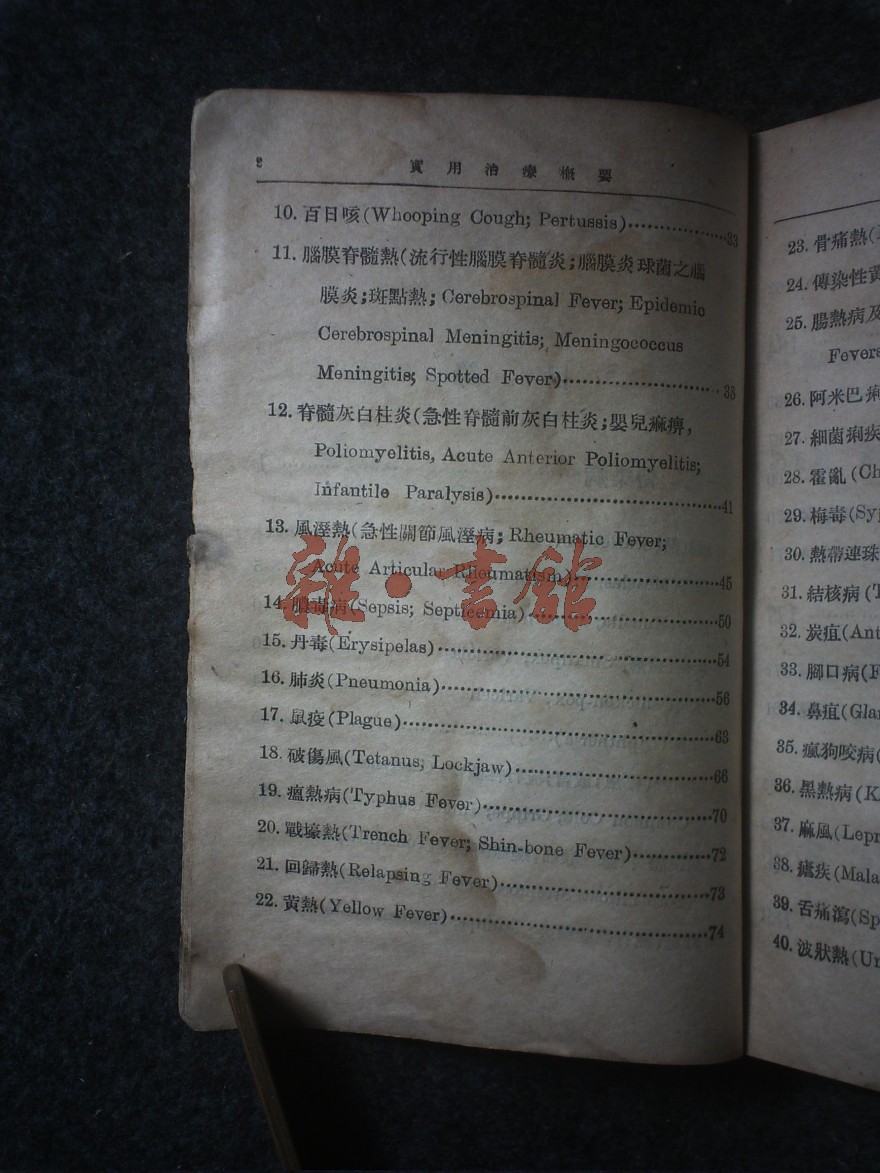 2
實用治療概要
10. 百日咳(Whooping Cough; Pertussis)……33
11. 腦膜脊髓熱(流行性腦膜脊髓炎;腦膜炎球菌之腦
膜炎;斑點熱; Cerebrospinal Fever; Epidemic
Cerebrospinal Meningitis; Meningococcus
Meningitis; Spotted Fever)……
12. 脊髓灰白柱炎(急性脊髓前灰白柱炎;嬰兒痲痹,
Poliomyelitis, Acute Anterior Poliomyelitis;
Infantile Paralysis)……41
13. 風溼熱(急性關節風溼病; Rheumatic Fever;
Acute Articular Rheumatism)……45
14. 膿毒病(Sepsis; Septicemia)……50
15. 丹毒(Erysipelas)……54
16. 肺炎(Pneumonia)……56
17. 鼠疫(Plague)……63
18. 破傷風(Tetanus; Lockjaw)……66
19. 瘟熱病(Typhus Fever)……70
20. 戰壕熱(Trench Fever; Shin-bone Fever)……72
21. 回歸熱(Relapsing Fever)……73
22. 黃熱(Yellow Fever)……74
雜·書館
23. 骨痛熱(
24. 傳染性黃
25. 腸熱病及
Fevers
26. 阿米巴痢
27. 細菌痢疾
28. 霍亂(Ch
29. 梅毒(Syp
30. 熱帶連珠
31. 結核病(T
32. 炭疽(Ant
33. 腳口病(F
34. 鼻疽(Glan
35. 瘋狗咬病(
36. 黑熱病(K
37. 麻風(Lepr
38. 瘧疾(Mala
39. 舌痛瀉(Sp
40. 波狀熱(Un